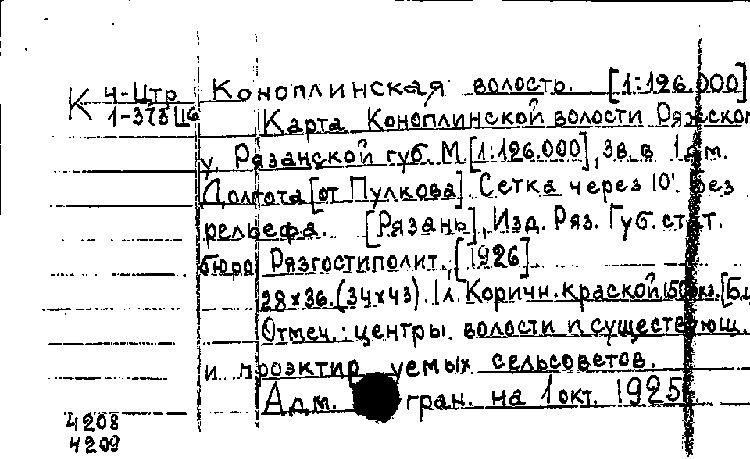 К Ч-Цтр Коноплинская волость. [1:126.000]
1-375 Карта Коноплинской волости Ряжског
у. Рязанской губ. М [1:126.000], 3в. в 1 дм.
Долгота [от Пулкова]. Сетка через 10'. Без
рельефа. [Рязань], Изд. Ряз. Губ. стат.
бюро Рязгостиполит., [1926]
28х36. (34х43). 1 л. Коричн. краской
Отмеч.: центры волости и существующ.
и проэктируемых сельсоветов.
Адм. гран. на 1 окт. 1925
4208
4209